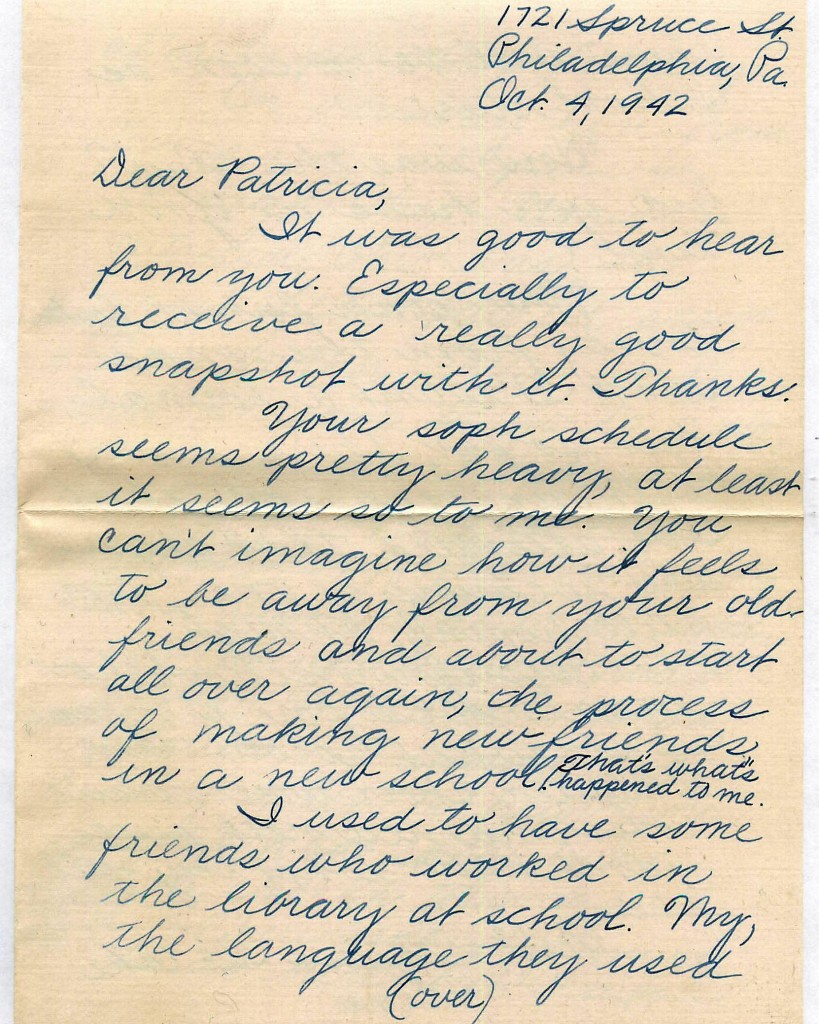 1721 Spruce St.
Philadelphia, Pa.
Oct. 4, 1942
Dear Patricia,
It was good to hear
from you. Especially to
receive a really good
snapshot with it. Thanks.
Your soph schedule
seems pretty heavy, at least
it seems so to me. You
can't imagine how it feels
to be away from your old
friends and about to start
all over again, the process
of making new friends
in a new school. That's what's
happened to me.
I used to have some
friends who worked in
the library at school. My,
the language they used
(over)